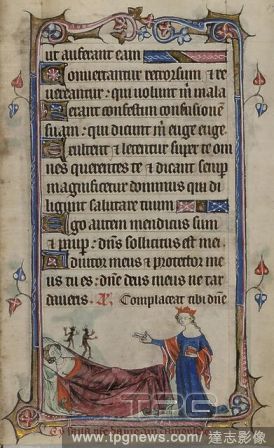 ut auferant eam
Convertantur retrorsum & re
vereantur: qui volunt m̄ mala
Ferant confestim confusionē
suam: qui dicunt m̄ euge euge
Exultent & letentur super te om
nes querentes te & dicant semp
magnificetur dominus qui di
ligunt salutare tuum
Ego autem mendicus sum
& paup: dn̄s sollicitus est mei
Adiutor meus & protector me
us tu es: dn̄e deus meus ne tar
daveris. A. Complaceat tibi dn̄e
TPG
www.tpgnews.com 達志影像